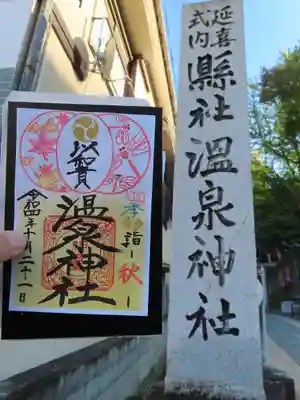 延喜
式内
縣社温泉神社
奉賀
温泉神社
季詣
-秋-
令和四年十月二十一日